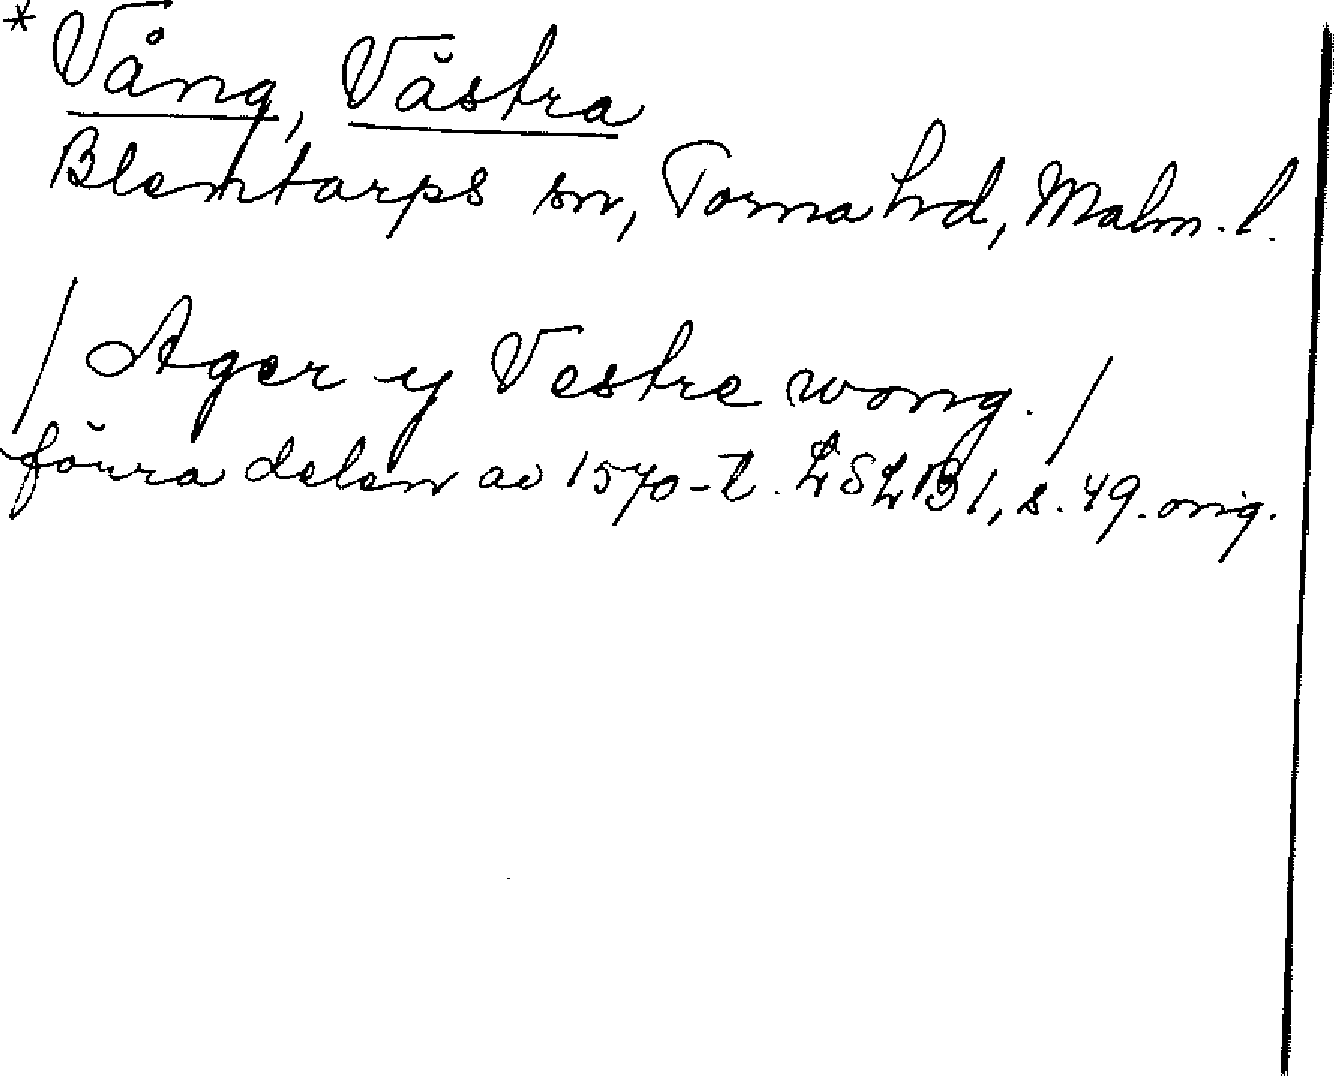 * Vång, Västra
Blentarps sn, Torna hrd, Malm. l.
/ Ager y Vestre wong. /
förra delen av 1570-t. LSLB1, s. 49. orig.